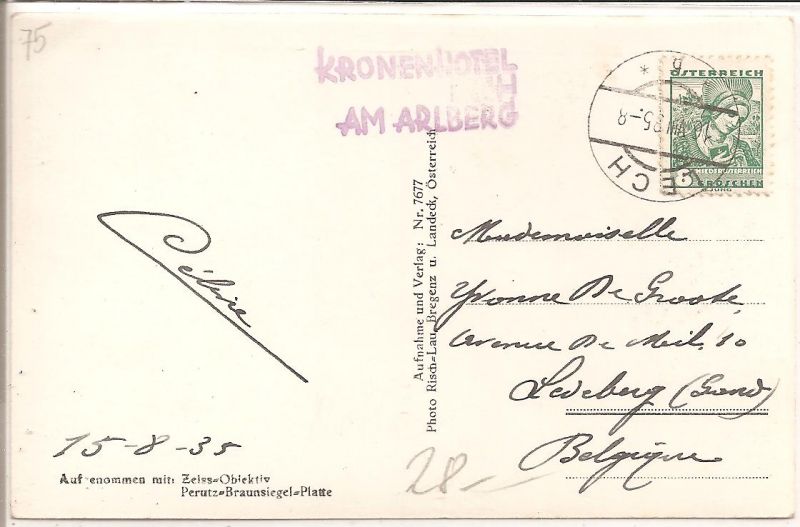 75
KRONENHOTEL
LECH
AM ARLBERG
ÖSTERREICH
NIEDERÖSTERREICH
5 GROSCHEN
LECH
35.-8
Céline
15-8-35
Auf enommen mit: Zeiss=Objektiv
Perutz=Braunsiegel=Platte
Aufnahme und Verlag: Nr. 7677
Photo Risch=Lau, Bregenz u. Landeck, Österreich
Mademoiselle
Yvonne De Groote
Avenue De Meil, 10
Ledeberg (Gand)
Belgique
28-